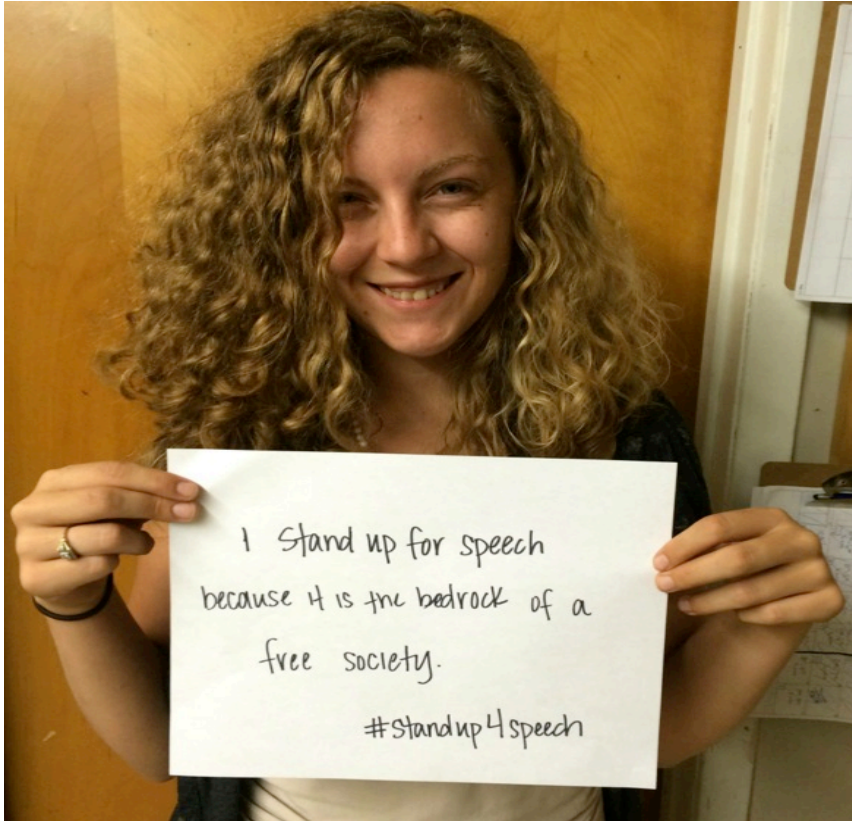 I stand up for speech
because it is the bedrock of a
free society.
#standup4speech